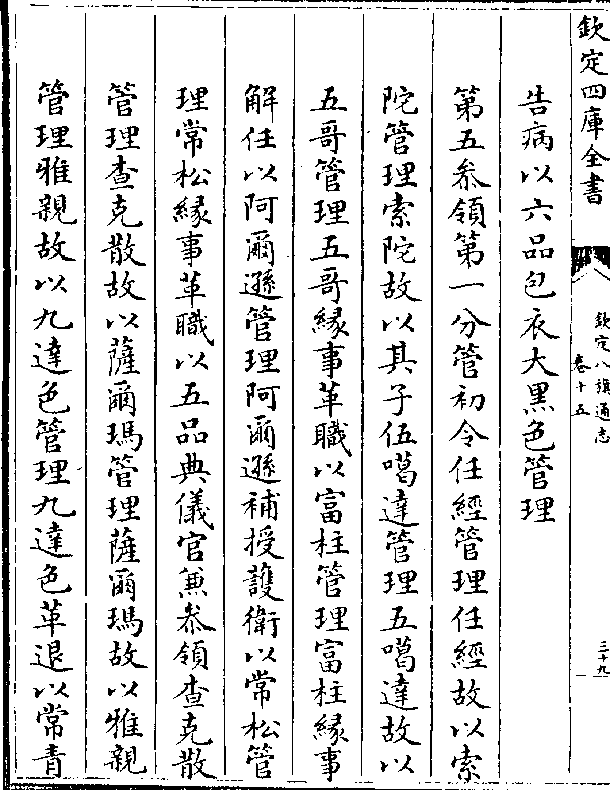 欽定四庫全書
欽定八旗通志
卷十五
三十九
告病以六品包衣大黑色管理
第五叅領第一分管初令任經管理任經故以索
陀管理索陀故以其子伍噶達管理五噶達故以
五哥管理五哥緣事革職以富柱管理富柱緣事
解任以阿爾遜管理阿爾遜補授護衛以常松管
理常松緣事革職以五品典儀官兼叅領查克散
管理查克散故以薩爾瑪管理薩爾瑪故以雅親
管理雅親故以九達色管理九達色革退以常青